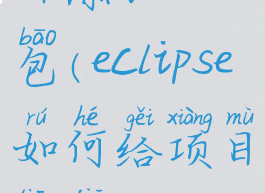 bāo
包(eclipse
rú hé gěi xiàng mù
如何给项目